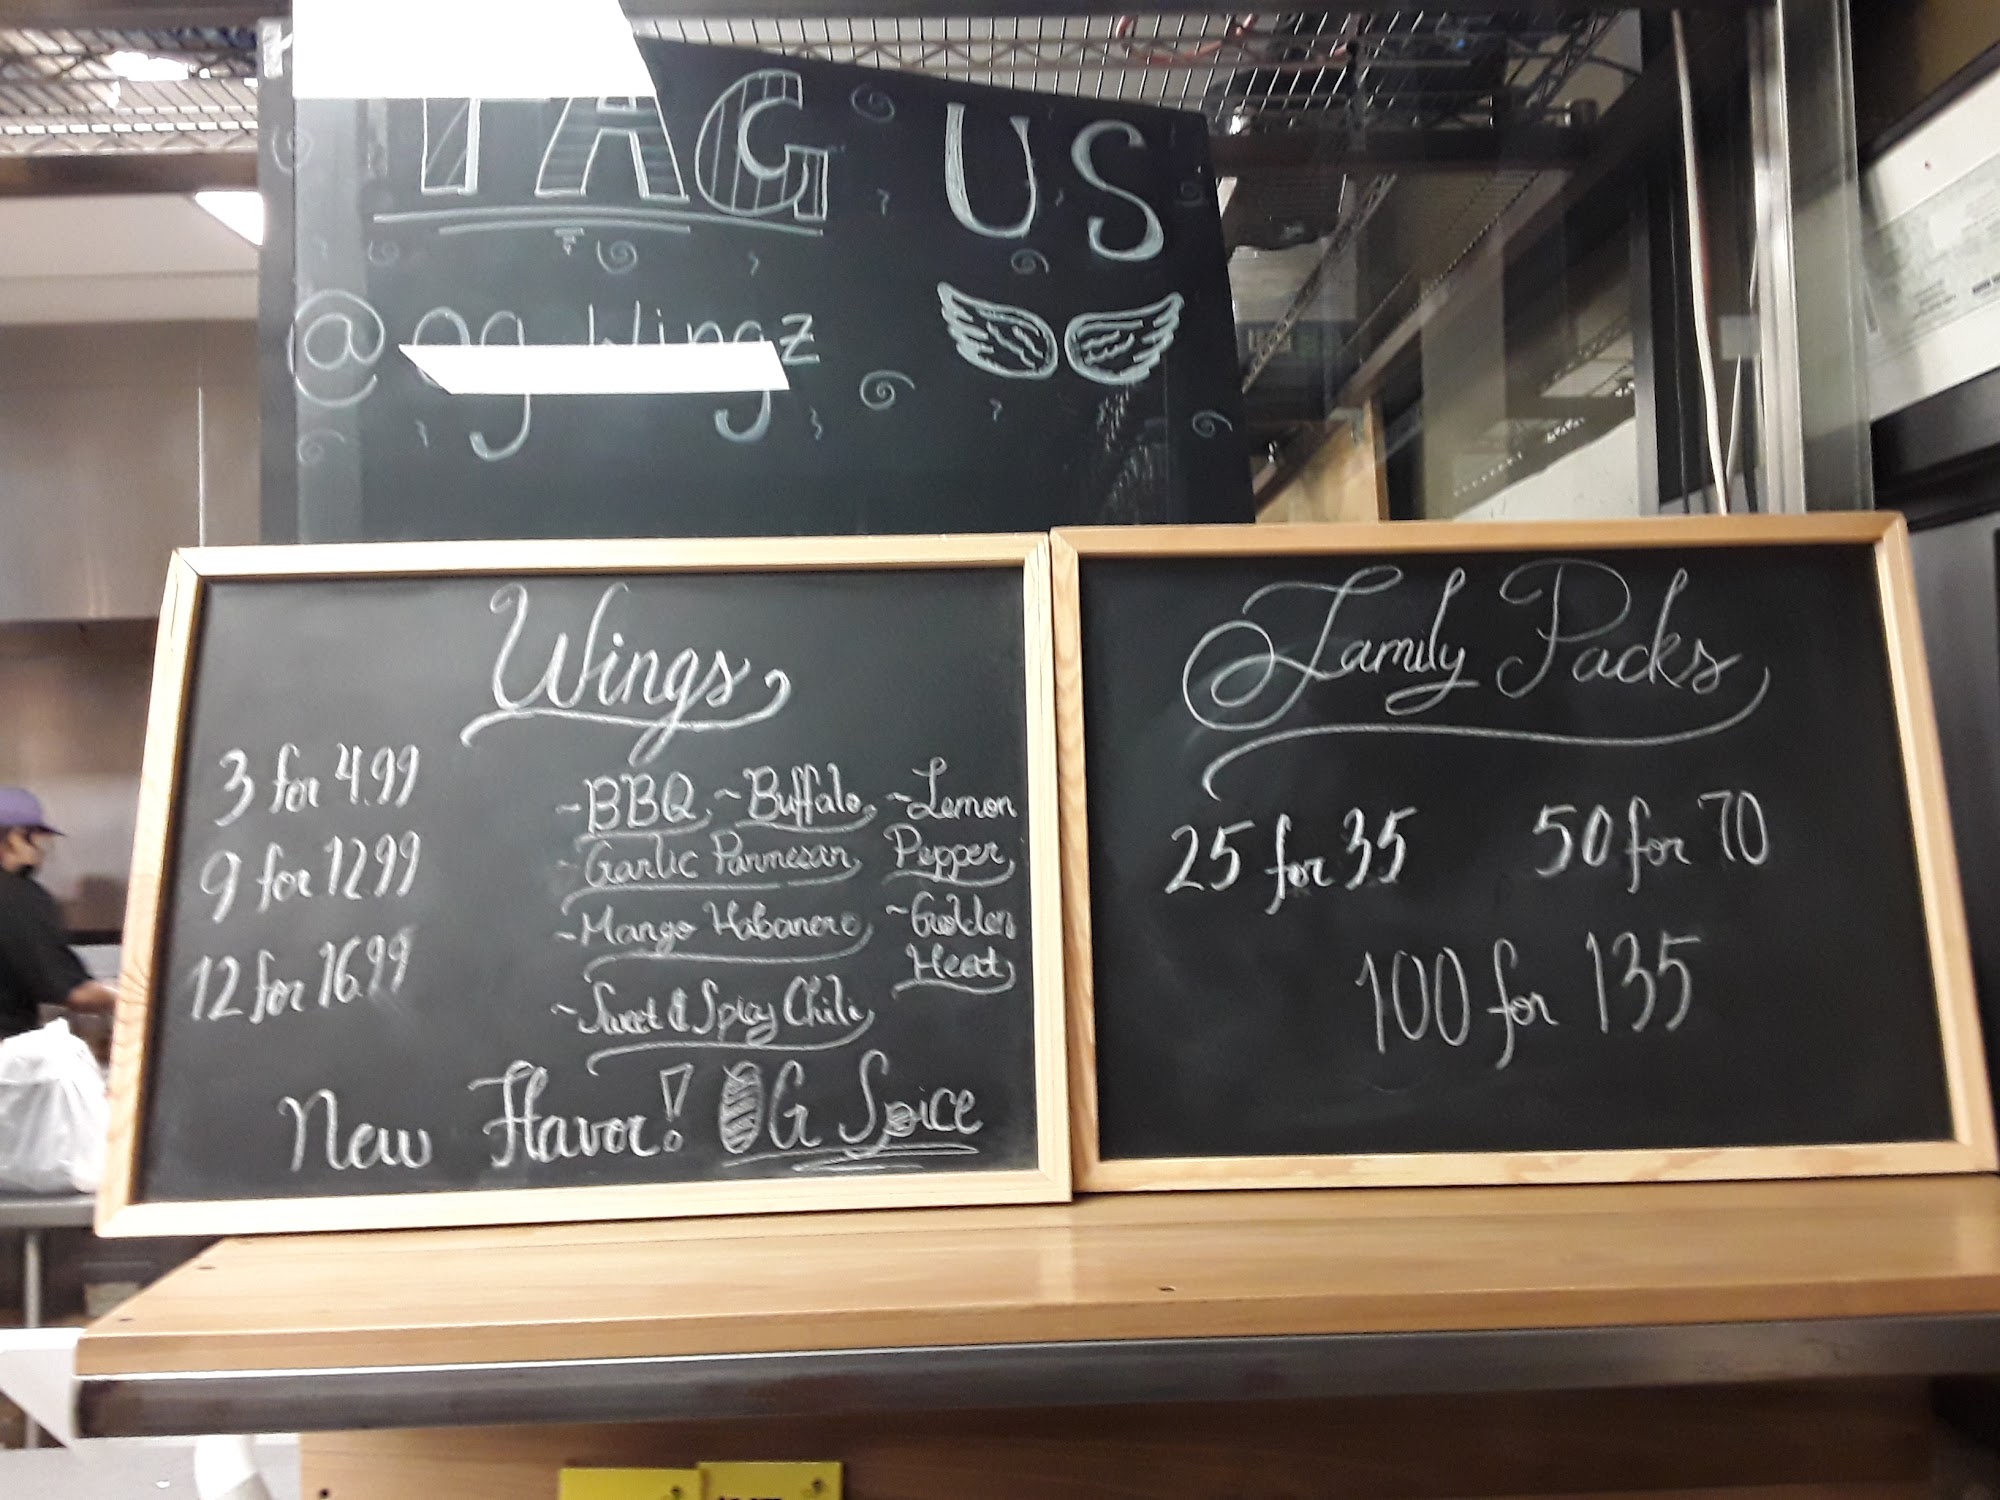 TAG US
@og_wingz
Wings
3 for 4.99
9 for 12.99
12 for 16.99
~BBQ ~Buffalo ~Lemon
~Garlic Parmesan Pepper
~Mango Habanero ~Golden
Heat
~Sweet & Spicy Chili
New Flavor! OG Spice
Family Packs
25 for 35 50 for 70
100 for 135